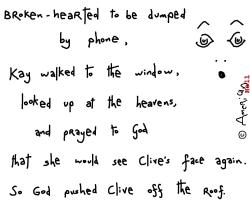 BRoken-heaRted to be dumped
by phone,
Kay walked to the window,
looked up at the heavens,
and prayed to God
that she would see Clive's face again.
So God pushed Clive off the roof.